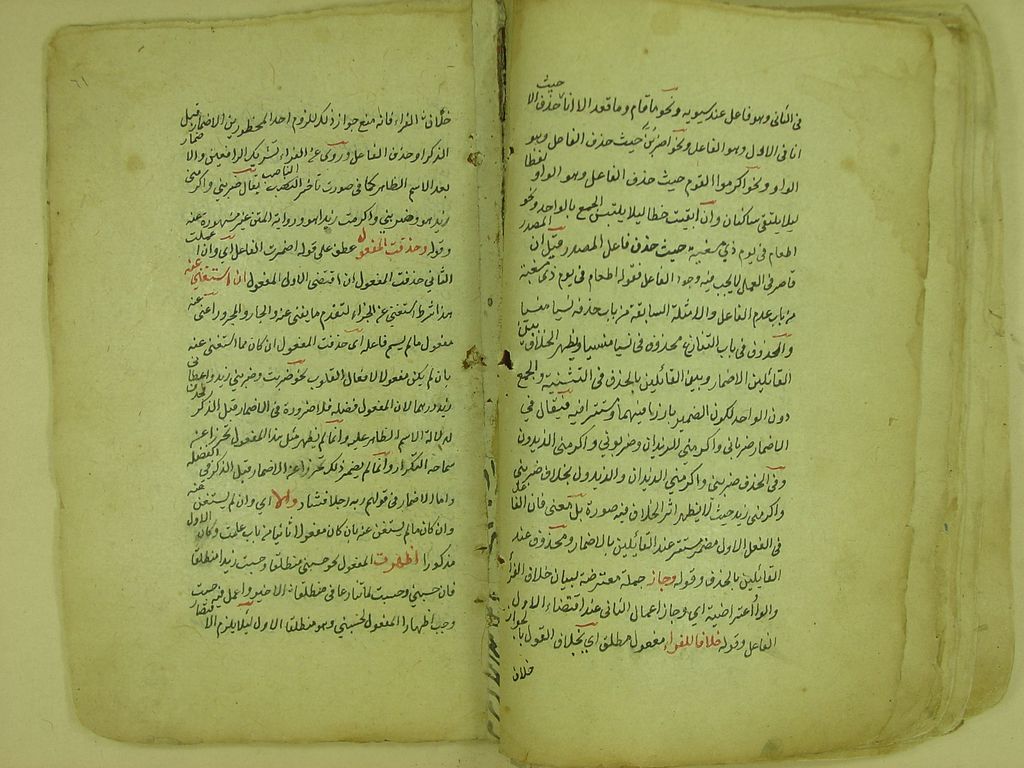 حيث
في الثاني وهو فاعل عند سيبويه ونحو ما قام وما قعد الا انا حذف الا
انا في الاول وهو الفاعل ونحو اضربن حيث حذف الفاعل وهو
الواو ونحو اكرموا القوم حيث حذف الفاعل وهو الواو لفظا
ليلا يلتقي ساكنان وان ابقيت خطا ليلا يلتبس الجمع بالواحد ونحو
اطعام في يوم ذي مسغبة حيث حذف فاعل المصدر قيل ان المصدر
قاصر في العمل لا يجب فيه وجود الفاعل فقوله اطعام في يوم ذي مسغبة
من باب عدم الفاعل والامثلة السابقة من باب حذفه نسيا منسيا
والمحذوف في باب التنازع محذوف نسيا منسيا ويظهر الخلاف بين
القائلين الاضمار وبين القائلين بالحذف في التثنية والجمع
دون الواحد لكون الضمير بارزا فيهما ومستترا فيه فيقال في
الاضمار ضرباني واكرمني الزيدان وضربوني واكرمني الزيدون
وفي الحذف ضربني واكرمني الزيدان والزيدون بخلاف ضربني
واكرمني زيد حيث لا يظهر اثر الخلاف فيه صورة بل معنى فان الفاعل
في الفعل الاول مضمر مستتر عند القائلين بالاضمار ومحذوف عند
القائلين بالحذف وقوله وجاز جملة معترضة لبيان خلاف الفراء
والواو اعتراضية اي وجاز اعمال الثاني عند اقتضاء الاول
الفاعل وقوله خلافا للفراء مفعول مطلق اي بخلاف القول بالجواز
خلاف
٦١
خلاف الفراء فانه منع جواز ذلك للزوم احد المحظورين الاضمار قبل
الذكر او حذف الفاعل وروى عن الفراء تشريك الرافعين والاضمار
بعد الاسم الظاهر كما في صورت تأخر الناصب يقال ضربني واكرمني
زيد هو وضربني واكرمت زيدا هو ورواية المتن غير مشهورة عنه
وقوله وحذفت المفعول عطف على قوله اضمرت الفاعل اي وان اعملت
الثاني حذفت المفعول ان اقتضى الاول المفعول ان استغني عنه
هذا شرط استغني عن الجزاء لتقدم ما يغني عنه والجار والمجرور اعني عنه
مفعول ما لم يسم فاعله اي حذفت المفعول ان كان مما استغني عنه
بان لم يكن مفعولا لافعال القلوب نحو ضربت وضربني زيد واعطاني
زيد درهما لان المفعول فضلة فلا ضرورة في الاضمار قبل الذكر
لدلالة الاسم الظاهر عليه وانما لم يظهر مثل هذا المفعول تحرزا عن
سماجة التكرار وانما لم يضمر ذلك تحرزا عن الاضمار قبل الذكر في الفضلة
واما الاضمار في قولهم ربه رجلا فشاذ والا اي وان لم يستغن عنه
وان كان مما لم يستغن عنه بان كان مفعولا ثانيا من باب علمت وكان الاول
مذكورا اظهرت المفعول نحو حسبني منطلقا وحسبت زيدا منطلقا
فان حسبني وحسبت لما تنازعا في منطلقا الاخير واعمل فيه حسبت
وجب اظهار المفعول لحسبني وهو منطلقا الاول ليلا يلزم الاقتصار